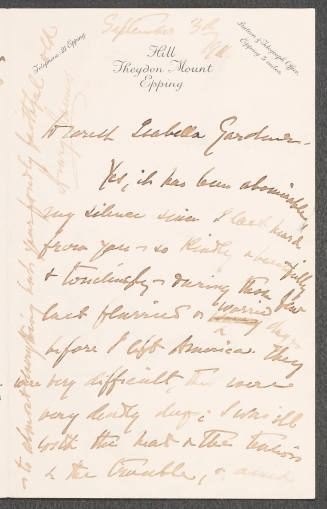 Telephone 21 Epping
Station & Telegraph Office,
Epping 2 miles.
September 3d
1911
Hill
Theydon Mount
Epping
Dearest Isabella Gardner –
Yes, it has been abominable
my silence since I last heard
from you – so kindly & beautifully
& touchingly – during those few
last flurried or worried days
before I left America. They
were very difficult, they were
very deadly days; I was ill
with the heat & the tension
& the trouble, &
to almost everything but your
faithful old